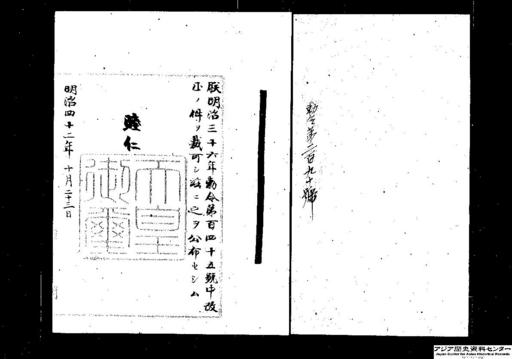 勅令第二百九十號
朕明治三十六年勅令第百四十五號中改
正ノ件ヲ裁可シ茲ニ之ヲ公布セシム
睦仁
天皇御璽
明治四十二年十月二十三日
アジア歴史資料センター
Japan Center for Asian Historical Records